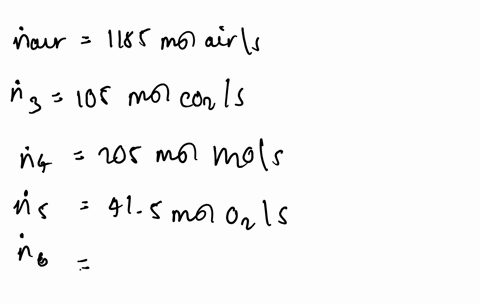 ṅair = 1185 mol air/s
ṅ3 = 105 mol CO2/s
ṅ4 = 205 mol mols
ṅ5 = 41.5 mol O2/s
ṅ6 =